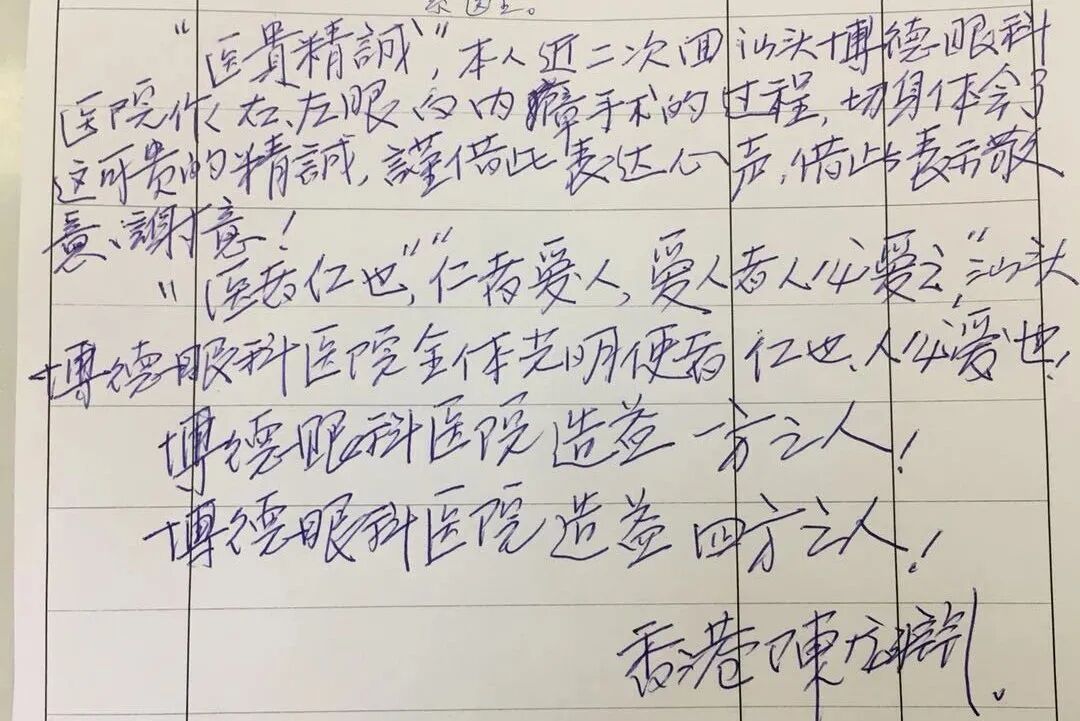 "医貴精誠",本人近二次回汕头博德眼科
医院作右、左眼白内障手术的过程,切身体会了
这可贵的精誠,謹借此表达心声,借此表示敬
意、謝意!
"医者仁也","仁者爱人,爱人者人必爱之",汕头
博德眼科医院全体光明使者仁也、人必爱也!
博德眼科医院造益一方之人!
博德眼科医院造益四方之人!
香港 陳